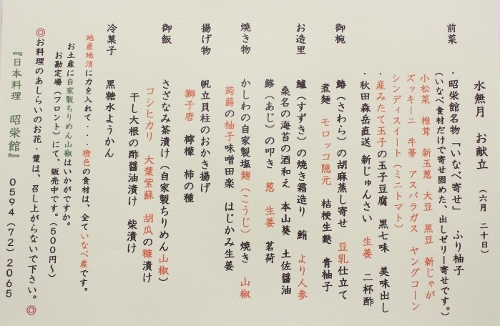 水無月　お献立　（六月　二十日）
前菜　・昭栄館名物「いなべ寄せ」　ふり柚子
（いなべ食材だけで寄せ固めた、出しゼリー寄せです。）
小松菜　椎茸　新玉葱　大豆　黒豆　新じゃが
ズッキーニ　牛蒡　アスパラガス　ヤングコーン
シンディスイート（ミニトマト）
・産みたて玉子の玉子豆腐　黒七味　美味出し
・秋田森岳直送、新じゅんさい　生姜　二杯酢
御椀　鰆（さわら）の胡麻蒸し寄せ　豆乳仕立て
煮麺　モロッコ隠元　桔梗生麩　青柚子
お造里　鱸（すずき）の焼き霜造り　鮪　より人参
桑名の海苔の酒和え　本山葵　土佐醤油
鯵（あじ）の叩き　葱　生姜　茗荷
焼き物　かしわの自家製塩麹（こうじ）焼き　山椒
蒟蒻の柚子味噌田楽　はじかみ生姜
揚げ物　帆立貝柱のおかき揚げ
獅子唐　檸檬　柿の種
御飯　さざなみ茶漬け（自家製ちりめん山椒）
コシヒカリ　大葉紫蘇　胡瓜の糠漬け
干し大根の酢醤油漬け　柴漬け
冷菓子　黒糖水ようかん
地産地消に力を入れて・・・橙色の食材は、全ていなべ産です。
お土産に自家製ちりめん山椒はいかがですか。
お勘定場（フロント）にて、販売中です。（５００円〜）
◎お料理のあしらいのお花・葉は、召し上がらないで下さい。◎
『日本料理　昭栄館』　０５９４（７２）２０６５